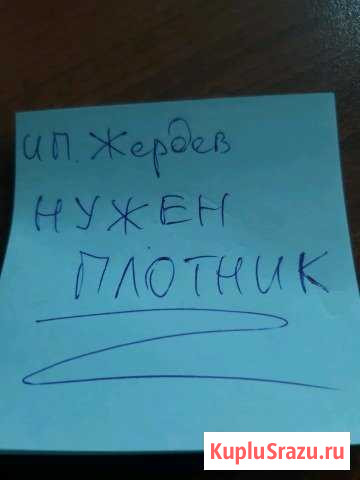 ИП. Жердев
НУЖЕН
ПЛОТНИК
KupluSrazu.ru